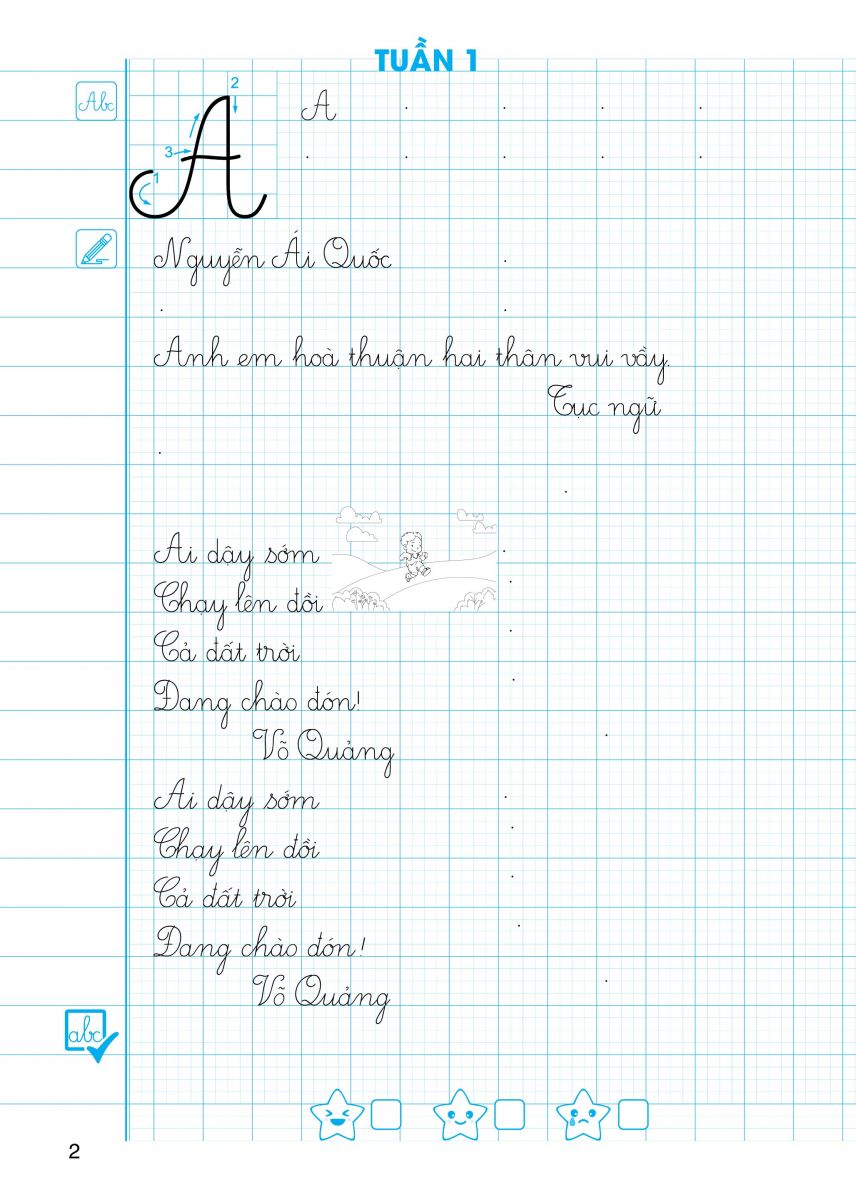 TUẦN 1
Abc
A
1
2
3
A
Nguyễn Ái Quốc
Anh em hoà thuận hai thân vui vầy.
Tục ngữ
Ai dậy sớm
Chạy lên đồi
Cả đất trời
Đang chào đón!
Võ Quảng
Ai dậy sớm
Chạy lên đồi
Cả đất trời
Đang chào đón!
Võ Quảng
abc
2